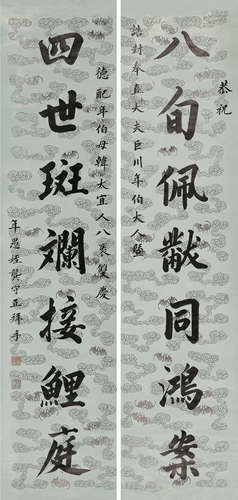 恭祝
誥封奉直大夫巨川年伯大人暨
八旬佩黻同鴻案
德配年伯母韓太宜人八袠雙慶
四世斑斕接鯉庭
年愚姪龔守正拜手